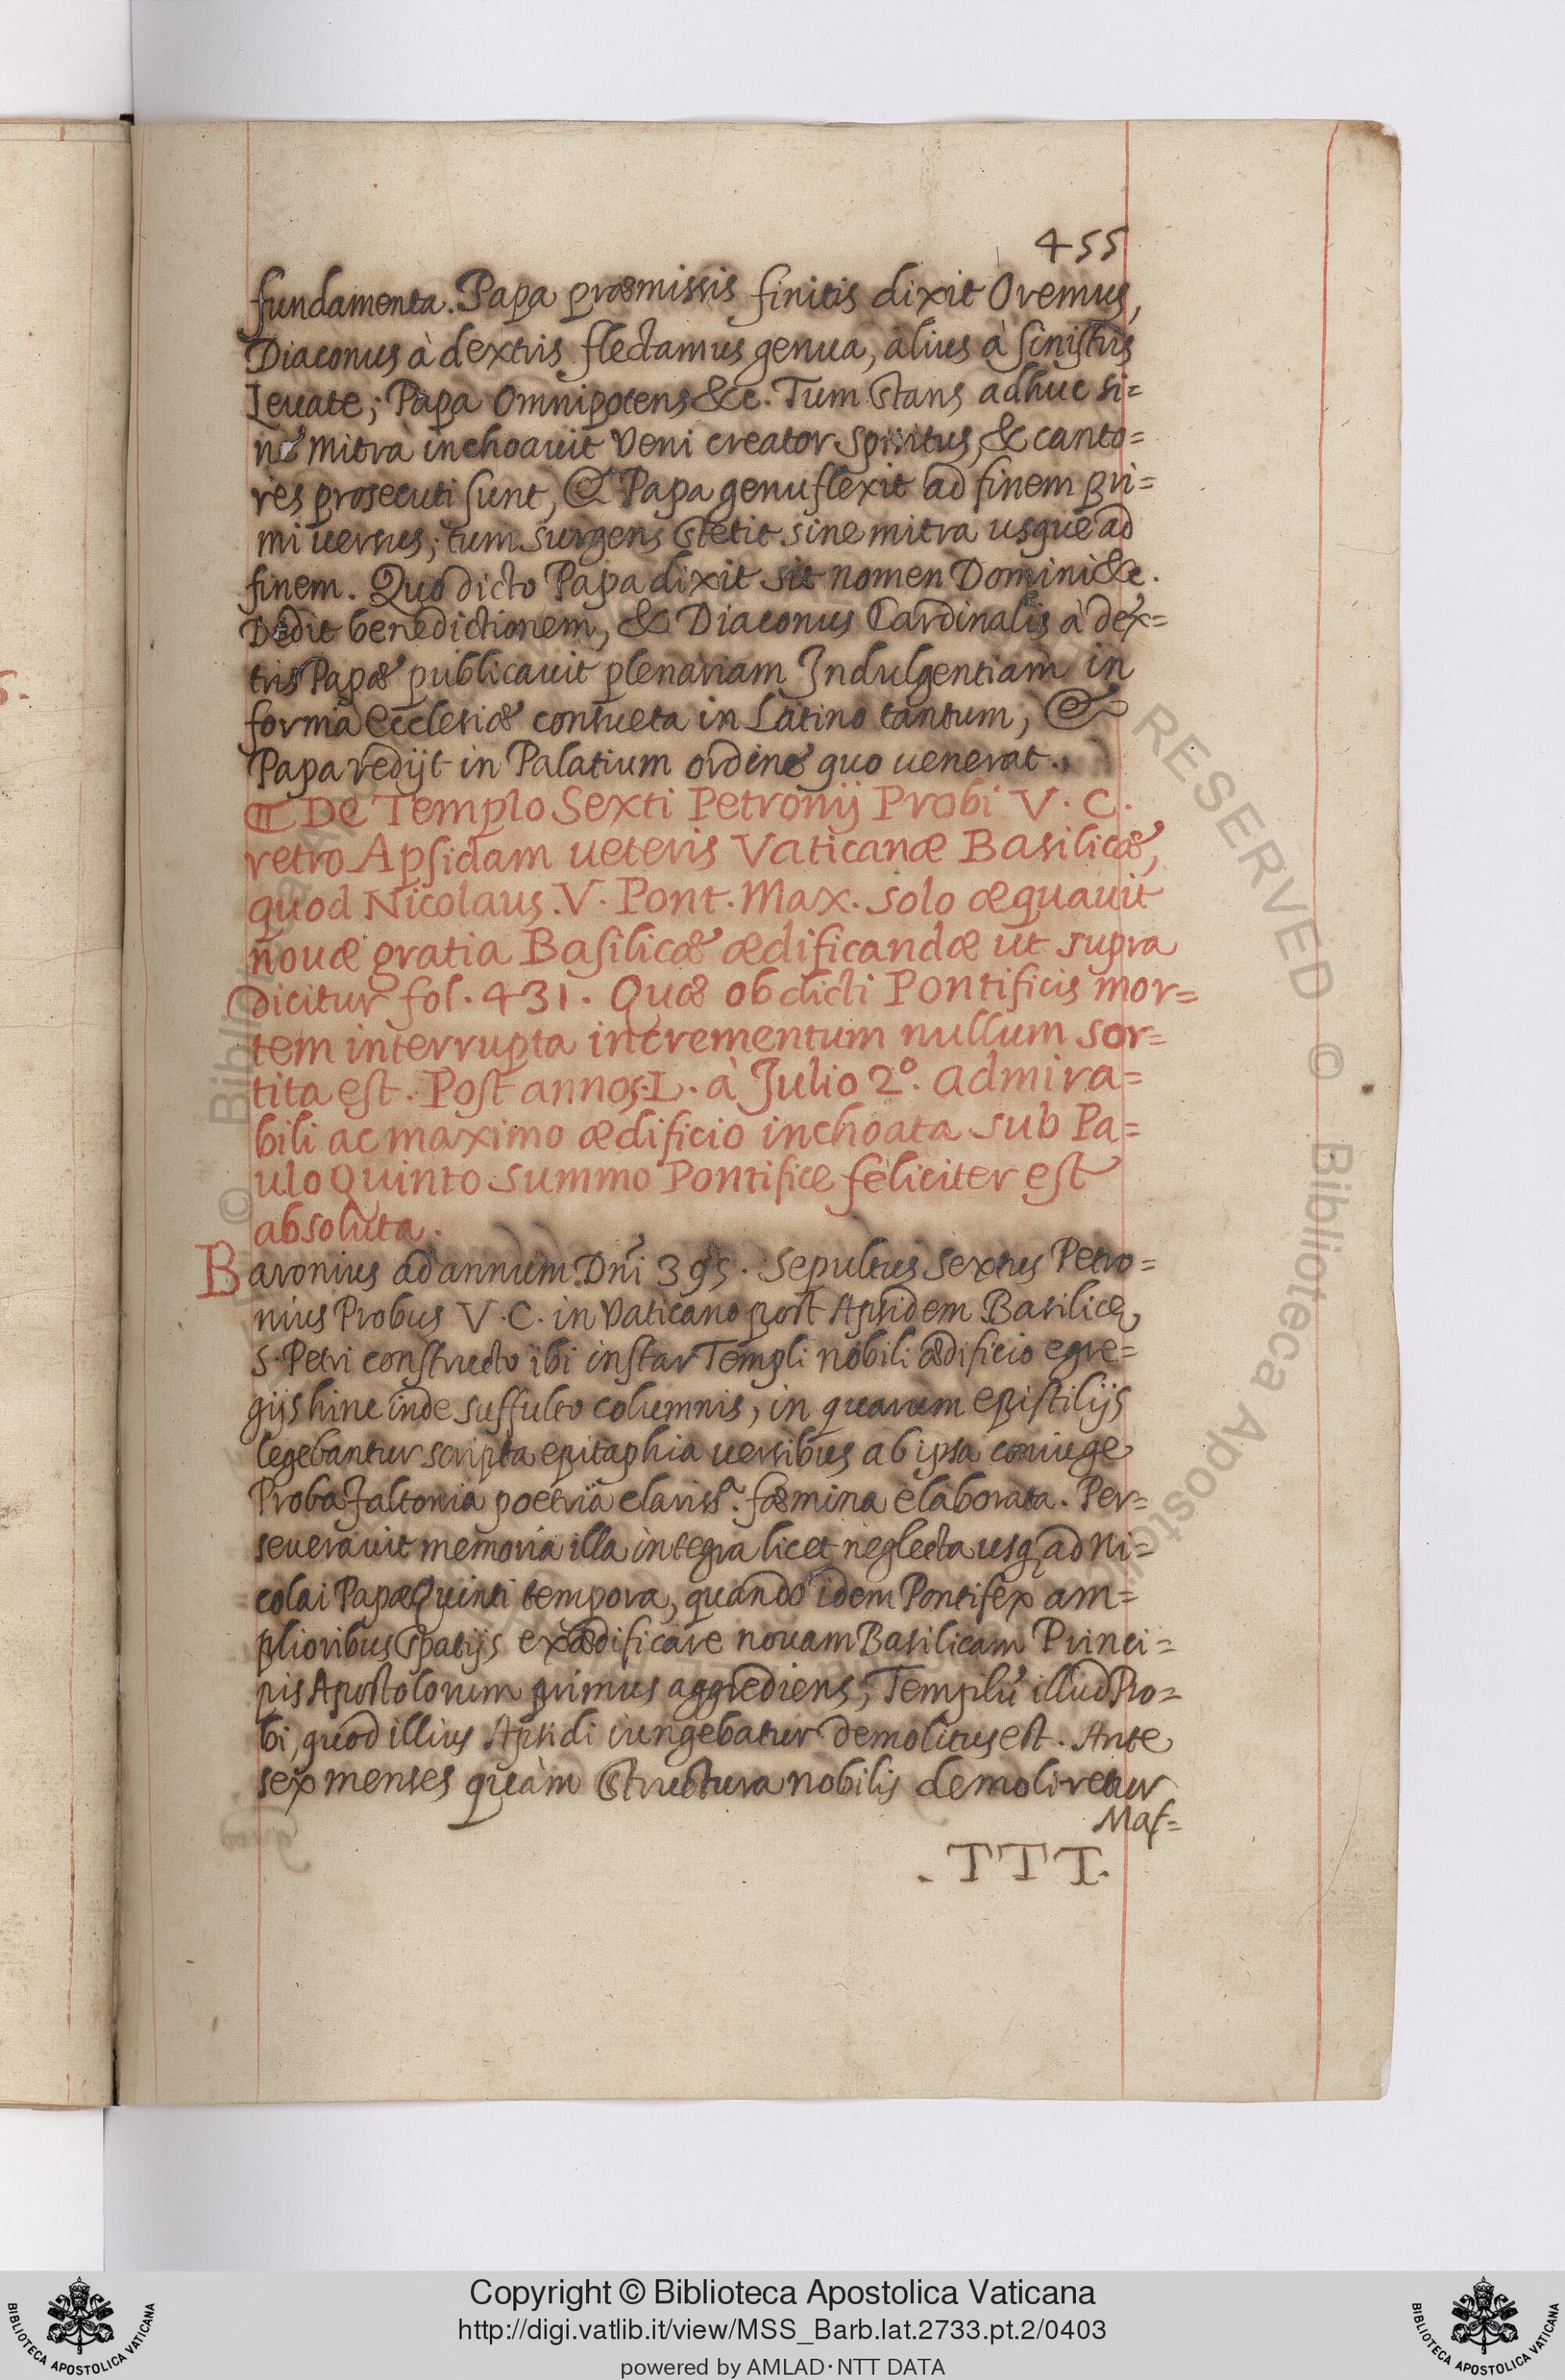 455
fundamenta. Papa præmissis finitis dixit Oremus,
Diaconus à dextris flectamus genua, alius à sinistris
Leuate; Papa Omnipotens &c. Tum stans adhuc si=
ne mitra inchoauit Veni creator Spiritus, & canto=
res prosecuti sunt, & Papa genuflexit ad finem pri=
mi uersus; tum surgens stetit sine mitra usque ad
finem. Quo dicto Papa dixit sit nomen Domini &c.
Dedit benedictionem, & Diaconus Cardinalis à dex=
tris Papæ publicauit plenariam Indulgentiam in
forma Ecclesiæ consueta in Latino tantum, &
Papa redijt in Palatium ordine quo uenerat.
¶ De Templo Sexti Petronij Probi V. C.
retro Apsidam ueteris Vaticanæ Basilicæ,
quod Nicolaus. V. Pont. Max. solo æquauit
nouæ gratia Basilicæ ædificandæ ut supra
dicitur fol. 431. Quæ ob dicti Pontificis mor=
tem interrupta incrementum nullum sor=
tita est. Post annos. L. à Julio 2º. admira=
bili ac maximo ædificio inchoata sub Pa=
ulo Quinto summo Pontifice feliciter est
absoluta.
Baronius ad annum Dni 395. Sepultus Sextus Petro=
nius Probus V. C. in Vaticano post Apsidem Basilicę
S. Petri constructo ibi instar Templi nobili ædificio egre=
gijs hinc inde suffulto columnis, in quarum epistilijs
legebantur scripta epitaphia uersibus ab ipsa coniuge
Proba Faltonia poetria clariss.ª fæmina elaborata. Per=
seuerauit memoria illa integra licet neglecta usq; ad Ni=
colai Papæ Quinti tempora, quando idem Pontifex am=
plioribus spatijs exædificare nouam Basilicam Princi=
pis Apostolorum primus aggrediens, Templũ illud Pro=
bi, quod illius Apsidi iungebatur demolitus est. Ante
sex menses quàm structura nobilis demoliretur
Maf=
. T T T.
Copyright © Biblioteca Apostolica Vaticana
http://digi.vatlib.it/view/MSS_Barb.lat.2733.pt.2/0403
powered by AMLAD·NTT DATA
BIBLIOTECA APOSTOLICA VATICANA
BIBLIOTECA APOSTOLICA VATICANA